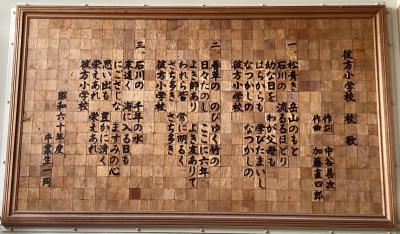 彼方小学校 校歌
作詞 中谷善次
作曲 加藤直四郎
一、松青き 岳山のもと
石川の 流るるほとり
幼な日を わが父母も
はらからも 学びたまいし
なつかしの なつかしの
彼方小学校
二、 草の のびゆく竹の
日々たのし ここに六年
よき師あり よき友ありて
われら皆 常に明るく
さち多き さち多き
彼方小学校
三、石川の 千年の水
末遠く 海に入る日も
にごさじな ますみの心
思い出も 豊かに清く
栄えあれ 栄えあれ
彼方小学校
昭和六十年度
卒業生一同